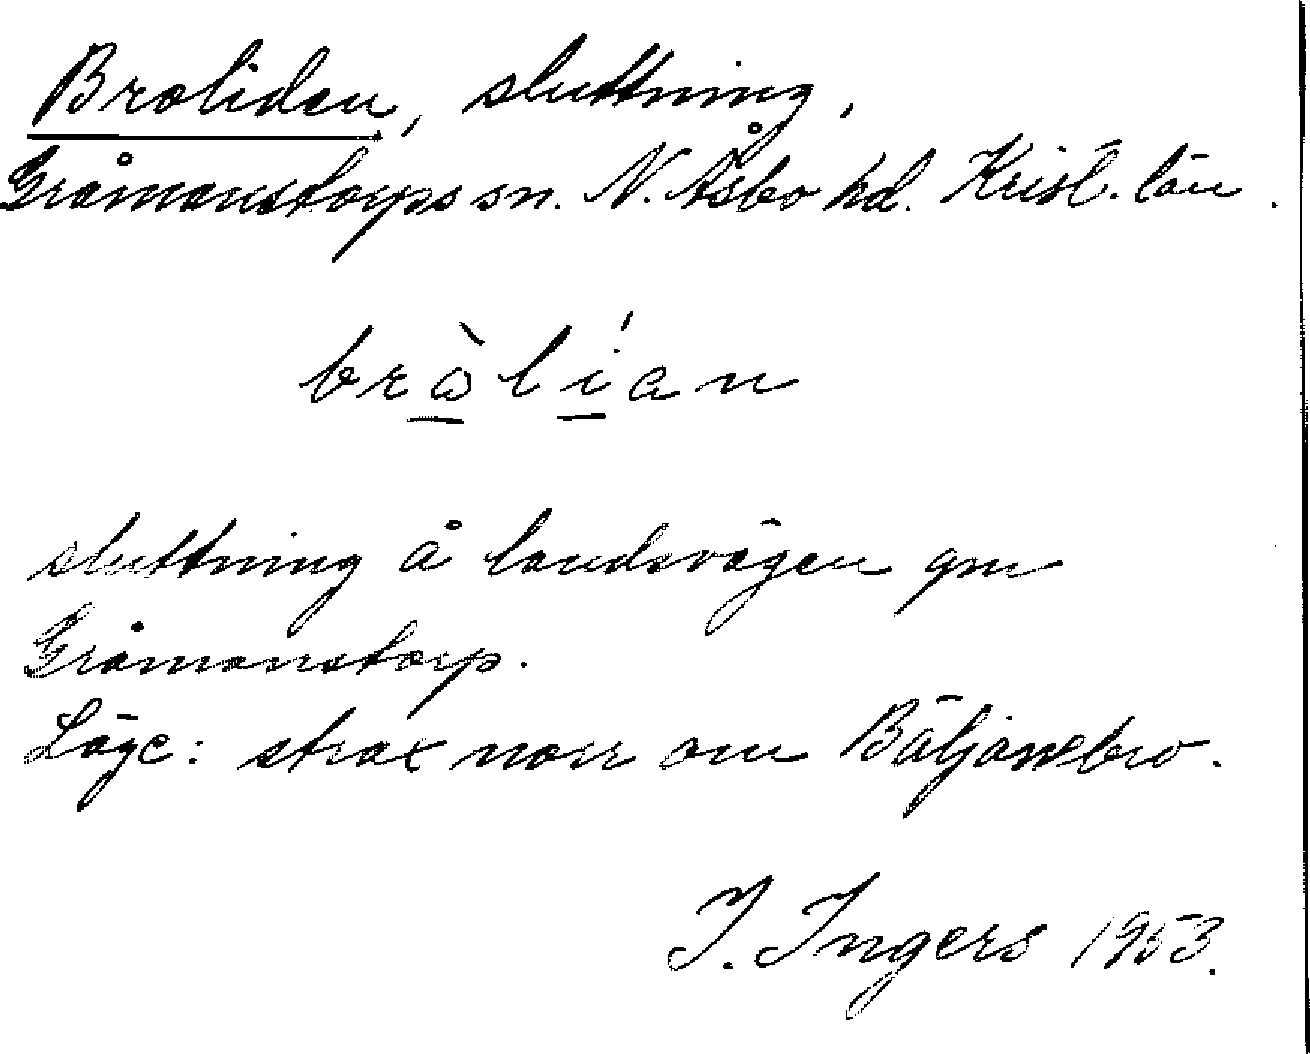 Broliden, sluttning,
Gråmanstorps sn. N. Åsbo hd. Krist. län.
bròlían
sluttning å landsvägen gm
Gråmanstorp.
Läge: strax norr om Bäljanebro.
I. Ingers 1953.